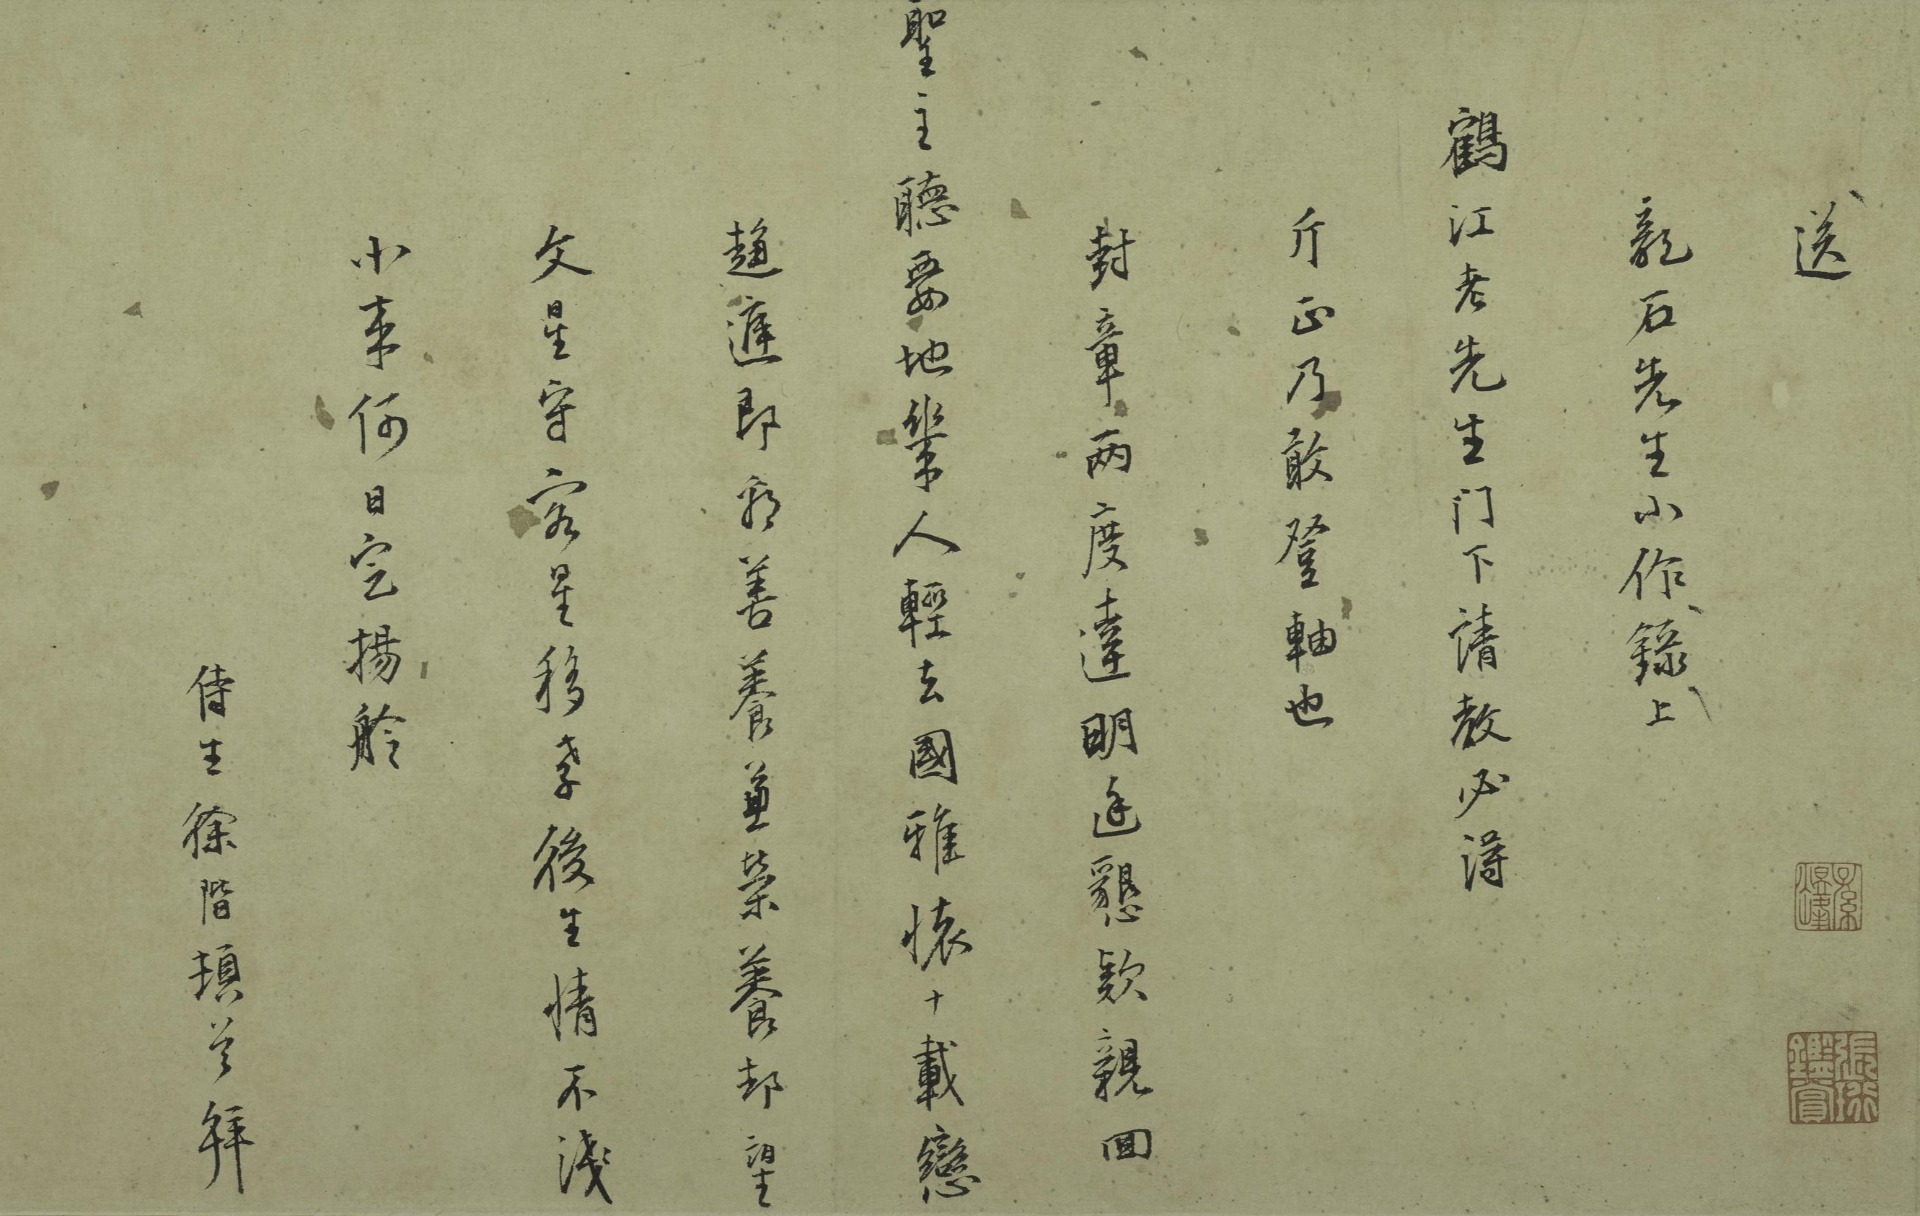 送
龍石先生小作錄上
鶴江老先生门下請教必得
斤正乃敢登軸也
封章兩度達明廷懇欵親回
聖主聽要地幾人輕去國雅懷十載戀
趨庭即看善養兼榮養却望
文星守客星移孝後生情不淺
小何日定揚舲
侍生徐階頓首拜
孫煜峰
張珩鑑賞